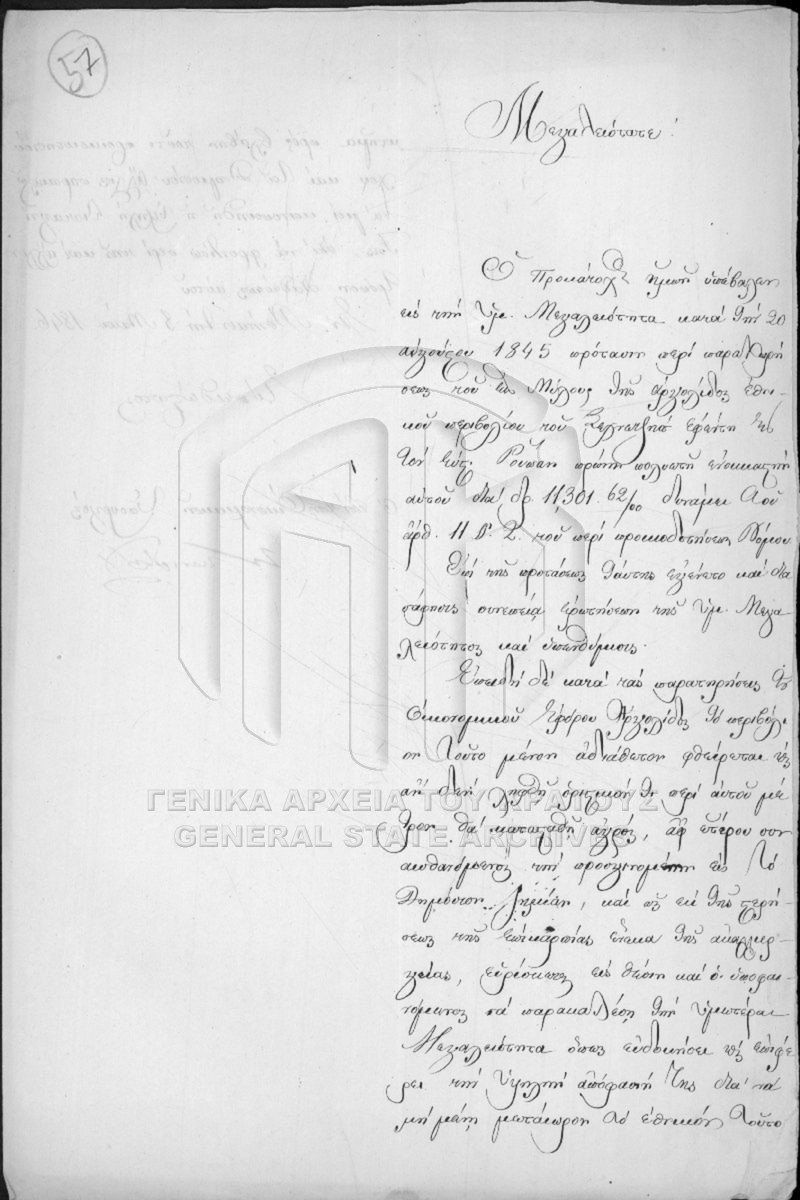 57
Μεγαλειότατε!
Ὁ Προκάτοχός ἡμῶν ὑπέβαλεν
εἰς τὴν Ὑμ. Μεγαλειότητα κατὰ τὴν 20
αὐγούστου 1845 πρότασιν περὶ παραχωρή
σεως τοῦ εἰς Μύλους τῆς ἀργολίδος ἐθνι-
κοῦ περιβολίου τοῦ ἐφέντη εἰς
τὸν πρώην ἐνοικιαστὴν
αὐτοῦ διὰ δρ. 11,301. 62/00 δυνάμει τοῦ
ἀρθ. 11 §. 2. τοῦ περὶ προικοδοτήσεως Νόμου
Ἐπὶ τῆς προτάσεως ταύτης ἐγένετο καὶ δια
σάφησις συνεπείᾳ ἐρωτήσεως τῆς Ὑμ. Μεγα
λειότητος καὶ ὑπενθύμισις.
Ἐπειδὴ δὲ κατὰ τὰς παρατηρήσεις τοῦ
Οἰκονομικοῦ Ἐφόρου Ἀργολίδος τὸ περιβόλι
ον τοῦτο μένον ἀδιάθετον φθείρεται
ἂν δὲν ληφθῇ ὁριστικόν τι περὶ αὐτοῦ μέ
τρον θὰ κατασταθῇ ἀγρός, ἀφ' ἑτέρου συν
αισθανόμενος τὴν προσγινομένην εἰς τὸ
Δημόσιον ζημίαν, καὶ ὡς ἐκ τῆς στερή-
σεως τῆς ἐπικαρπίας ἕνεκα τῆς ἀκαλλιερ-
γείας, εὑρίσκεται εἰς θέσιν καὶ ὁ ὑποφαι-
νόμενος νὰ παρακαλέσῃ τὴν Ὑμετέραν
Μεγαλειότητα ὅπως εὐδοκήσει καὶ ἐπιφέ
ρει τὴν Ὑψηλὴν ἀπόφασίν Της διὰ νὰ
μὴ μένῃ μετέωρον τὸ ἐθνικὸν τοῦτο
ΓΕΝΙΚΑ ΑΡΧΕΙΑ ΤΟΥ ΚΡΑΤΟΥΣ
GENERAL STATE ARCHIVES